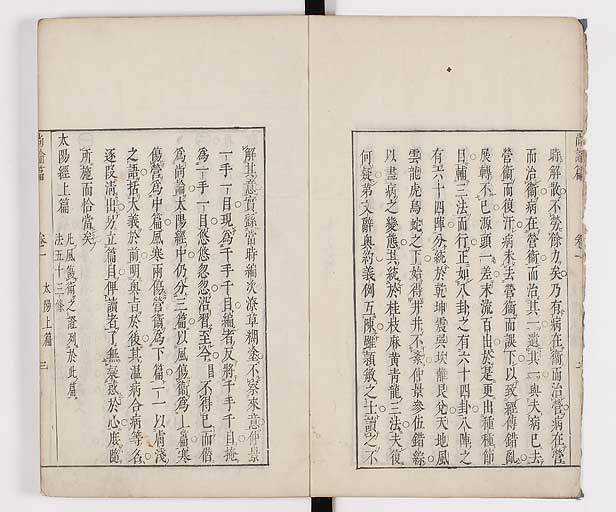 尚論篇 卷一
解散不勞餘力矣乃有病在衛而治營病在營
而治衛病在營衛而治其一遺其一與夫病已去
營衛而復汗病未去營衛而誤下以致經傳錯亂
展轉不已源頭一差末流百出於是更出種種節
目輔三法而行正如八卦之有六十四卦八陣之
有六十四陣分統於乾坤震巽坎離艮兌天地風
雲龍虎鳥蛇之下始得井井不紊仲景參伍錯綜
以盡病之變態其統於桂枝麻黃青龍三法夫復
何疑第文辭奧約義例互陳雖穎敏之士讀之不
解其意實緣當時編次潦草糊塗不察來意仲景
一手一目現為千手千目編者反將千手千目掩
為一手一目悠悠忽忽沿習至今昌不得已而僭
為尚論太陽經中仍分三篇以風傷衛為上篇寒
傷營為中篇風寒兩傷營衛為下篇一一以膚淺
之語括大義於前明奧旨於後其溫病合病等名
逐段清出另立篇目俾讀者了無疑惑於心庶隨
所施而恰當矣
太陽經上篇 凡風傷衛之證列於此篇
法五十三條
尚論篇 卷一 太陽上篇 三